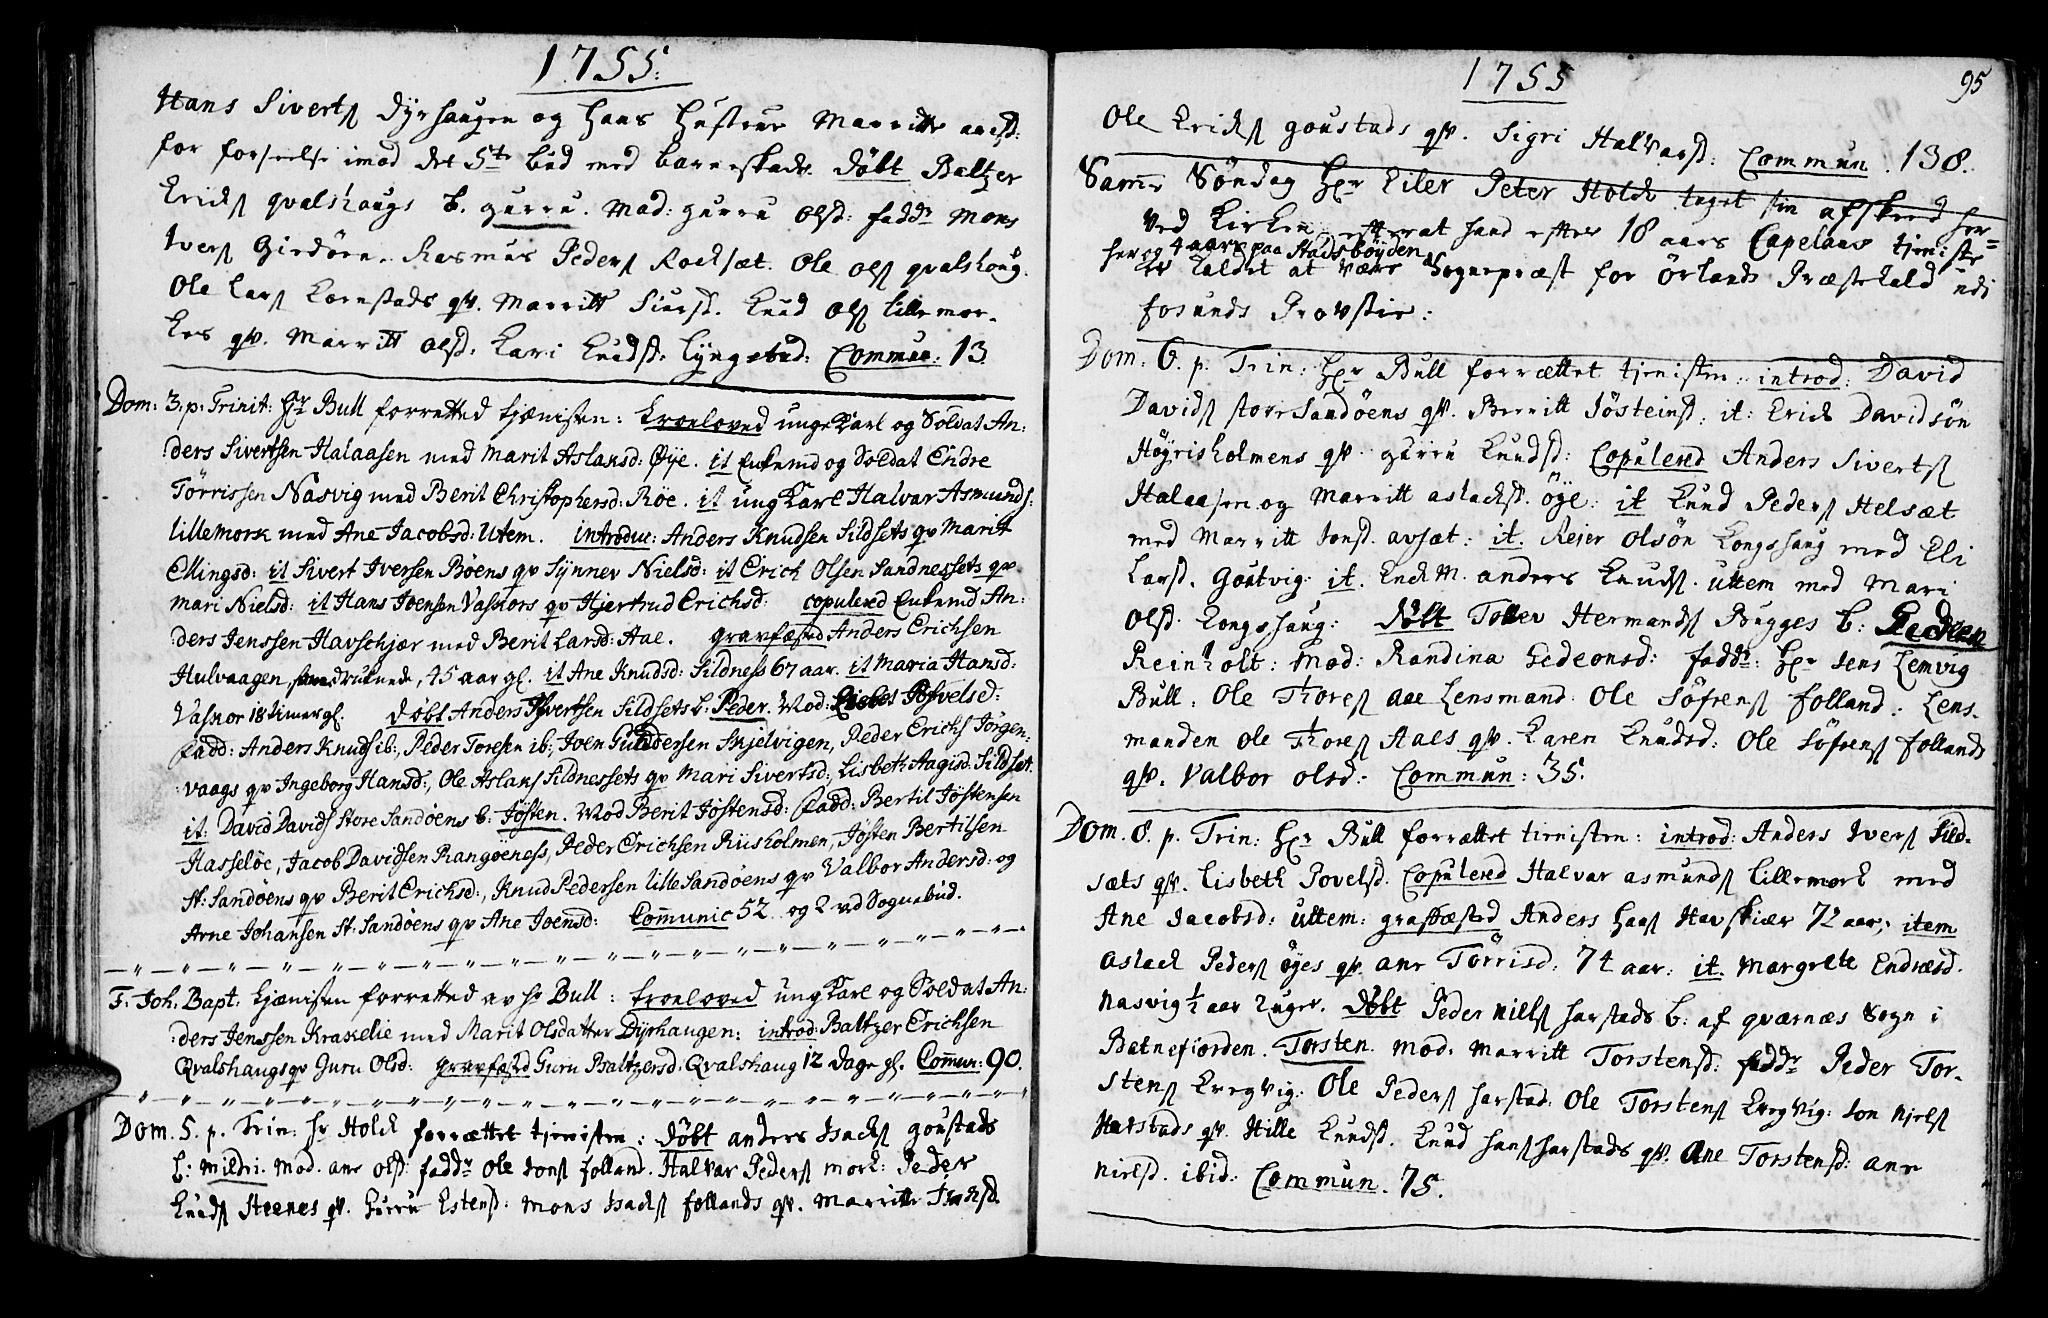 1755:
Hans Siverts Dyrhaugen og hans hustrue Marritte arresd:
for forseelse imod det 5te bud med barnerskade. Döbt Baltzer
Erichs qvalshaugs b. gurru. Mod: gurru Olsd: faddr Mons
Ivers Giedöen. Rasmus Peders Rochsæt. Ole Ols qvalshoug.
Ole Lars Lornstads qv. Marritt Siursd. Knud Ols lillemor-
kes qv. Marritt Olsd: Kari Knudsd. Lyngstad: Commun: 13
Dom: 3. p. Trinit: Hr Bull forretted tjænisten: troeloved unge Karl og Soldat An:
:ders Sivertsen Halaasen med Marit Aslaksd: Øye. it Enkemd og Soldat Endre
Törrissen Nasvig med Berit Christophersd: Röe. it ung Karl Halvar Asmunds:
Lillemork med Ane Jacobsd: Utem. introduc: Anders Knudsen Sildsets qv Marit
Ellingsd: it Sivert Iversen Böens qv Synnev Nielsd: it Erich Olsen Sandnessets qv
Mari Nielsd: it Hans Joensen Vaskors qv Hjertrud Erichsd: copulered Enkemd An:
:ders Jenssen Havschjær med Berit Larsd: Aae. gravfæsted Anders Erichsen
Hulvaagen, druknede, 45 aar gl. it Ane Knudsd: Sildness 67 aar. it Maria Hansd:
Vaskor 18 timer gl. Döbt Anders Ivertsen Sildsets b: Peder. Mod: Lisbet Povelsd:
Fadd: Anders Knuds ib:, Peder Toresen ib:, Joen Guldersen Skjelvigen, Peder Erichs Jörgen:
:vaags qv Ingeborg Hansd:, Ole Aslaks Sildnessets qv Mari Sivertsd: Lisbeth Aagisd: Sildset.
it: David Davids Store Sandöens b: Jösten. Mod Berit Jöstensd: Fadd: Bertil Jöstensen
Hasselöe, Jacob Davidsen Rangöeness, Peder Erichsen Riisholmen, Jösten Bertilsen
St: Sandöens qv Berit Erichsd:, Knud Pedersen lille Sandöens qv Valbor Andersd: og
Arne Johansen St: Sandöens qv Ane Joensd: Comunic 52 og 2 ved Sognebud.
F. Joh. Bapt: tjænisten forretted av hr Bull: troeloved ung Karl og Soldat An:
:ders Jenssen Kraxelie med Marit Olsdatter Dyrhaugen: introd: Baltzer Erichsen
Qvalshaugs qv Guru Olsd: gravfæsted Guru Baltzersd: Qvalshaug 12 dage gl. Comun: 90.
Dom. 5. p. Trin: hr Holck forrættet tjenisten: Döbt anders Isachs goustads
b: Mildri. Mod. ane Olsd: faddr Ole Jons folland. Halvar Peders mork: Peder
Knuds Steenes qv. Gurru Estensd: Mons Isachs follands qv. Marritte Isachsd.
1755
95
Ole Erichs goustads qv. Sigri Halvarsd: Commun. 138.
Same Söndag Hr Eiler Peter Holck taget sin afskeed her=
ved Kirken efterat hand efter 18 aars Capelans tieniste
her og 4 aar paa Stadsböyden
er kaldet at være Sognepræst for Örlands Præstekald udi
fosunds Provstie:
Dom. 6. p. Trin: Hr Bull forrættet tjenisten: introd: David
Davids store Sandöens qv. Berritt Jösteinsd: it: Erich Davidsön
Höyrisholmens qv. gurru Knudsd: Copulered Anders Siverts
Halaasen og Marritt aslachsd. öye: it Knud Peders Helsæt
med Marritt Jonsd. avsæt: it. Reier Olsön Kongshaug med Eli
Larsd. Goutvig: it. Enck M. anders Knuds. uttem med Mari
Olsd Kongshaug: Döbt Tollev Hermands Bugges b: Peder
Reinholt: Mod: Randina Gedeonsd: faddr: Hr Jens Lemvig
Bull: Ole Thores aae Lensmand Ole Söfrens folland: Lens-
manden Ole Thores Aaes qv. Karen Knudsd: Ole Söfrens follands
qv. Valbor Olsd: Commun: 35.
Dom. 8. p. Trin: Hr Bull forrættet tienisten: introd: Anders Ivers Sild-
sæts qv. Lisbeth Povelsd. Copulered Halvar asmunds Lillemork med
Ane Jacobsd: uttem: graffæsted Anders Hans Havskiær 72 aar: item
aslach Peders öyes qv. ane Törrisd. 74 aar: it. Margrete Endresd.
Nasvig ½ aar 2 uger. Döbt Peder Niels harstads b: af qværnæs Sogn i
Batnefiorden. Torsten. Mod: Marritt Torstensd: faddr Peder Tor-
stens Eregvig: Ole Peders harstad: Ole Torstens Eregvig: Jon Niels
Harstads qv. Hille Knudsd. Knud Hans harstads qv. Ane Torstensd: ane
Nielsd. ibid: Commun. 75.